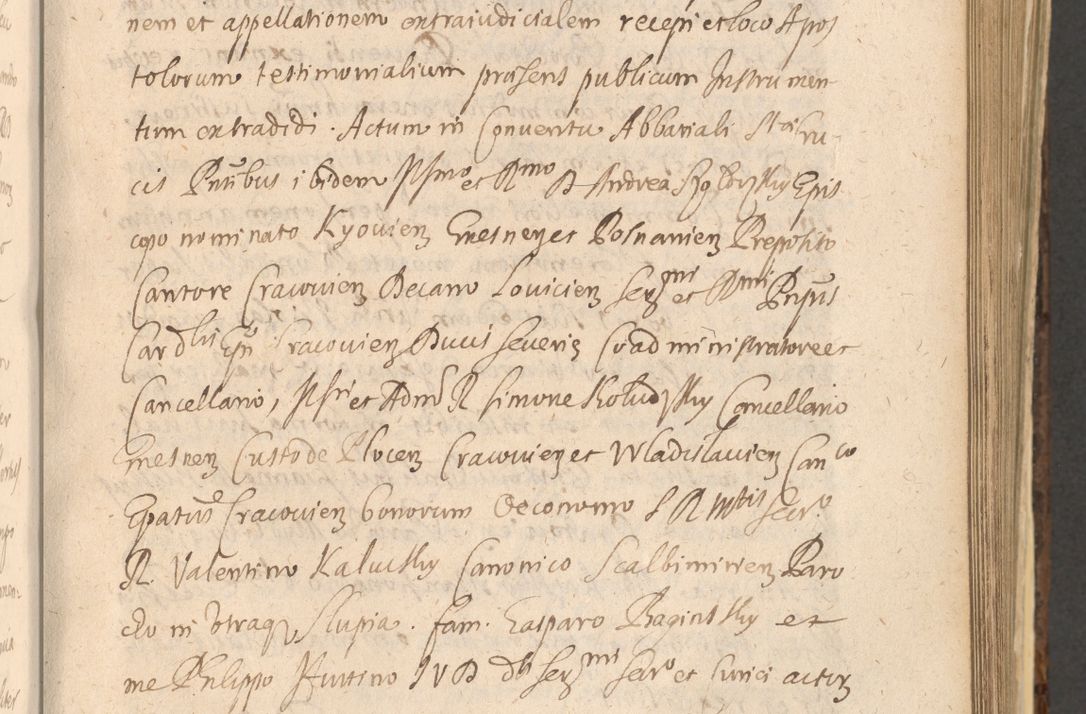 nem et appellationem extraiudicialem recepi et loco Apos
tolorum testimonialium præsens publicum Instrumen
tum extradidi. Actum in Conventu Abbatiali Stæ Cru-
cis Pntibus ibidem Illmo et Rmo D Andrea Szołdrzky Epis
copo nominato Kyovien Gnesnen et Posnanien Preposito
Cantore Cracovien Decano Lovicien Sermi et Rmi Pnpis
Cardlis Epi Cracovien Ducis Severiæ Coadministratore et
Cancellario, Illri et Admo R Simone Koludzky Cancellario
Gnesnen Custode Plocen Cracovien et Wladislavien Canco
Epatus Cracovien bonorum Oeconomo S R Mttis Secrio
R. Valentino Kaluski Canonico Scalbimirien Paro
cho in utraq Slupia. fam. Gasparo Raginsky et
me Philippo Huttino IVD dti Sermi Secrio et Curiæ actor